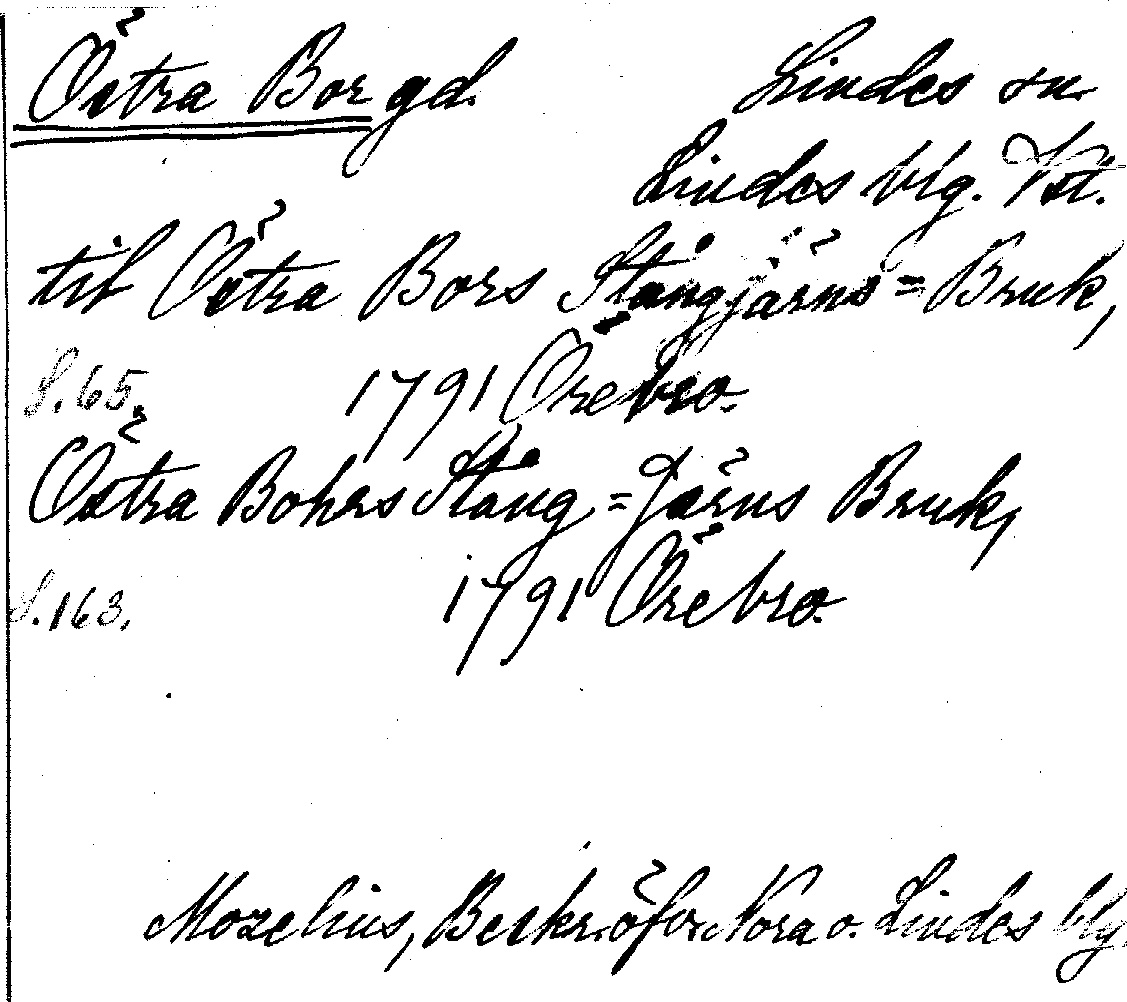 Östra Bor gd. Lindes sn.
Lindes blg. Vst.
til Östra Bors Stångjärns=Bruk,
S. 65. 1791 Örebro.
Östra Bohrs Stång=Järns Bruk,
S. 163. 1791 Örebro.
Mozelius, Beskr. öfver Nora o. Lindes blg.